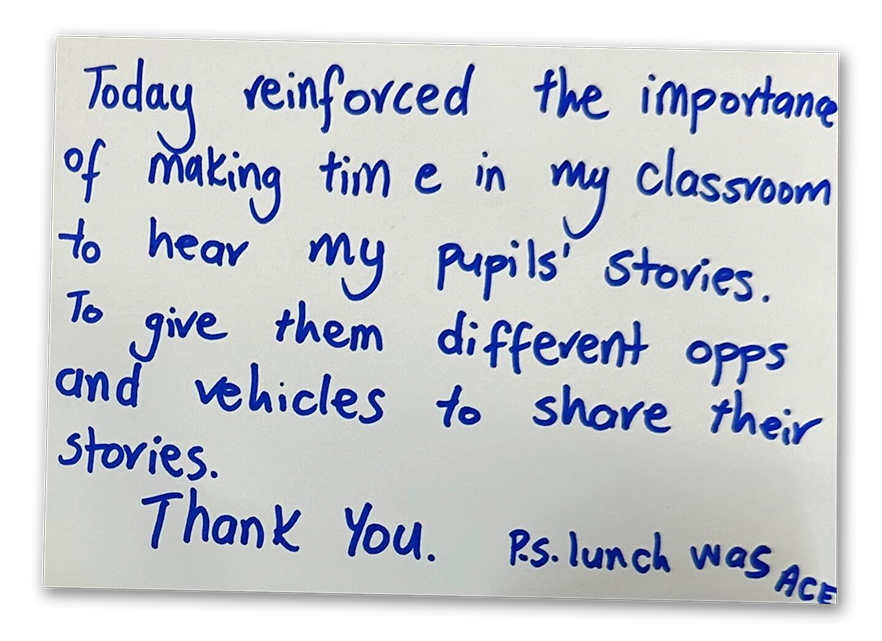 Today reinforced the importance
of making time in my classroom
to hear my pupils' stories.
To give them different opps
and vehicles to share their
stories.
Thank You. P.s. lunch was ACE